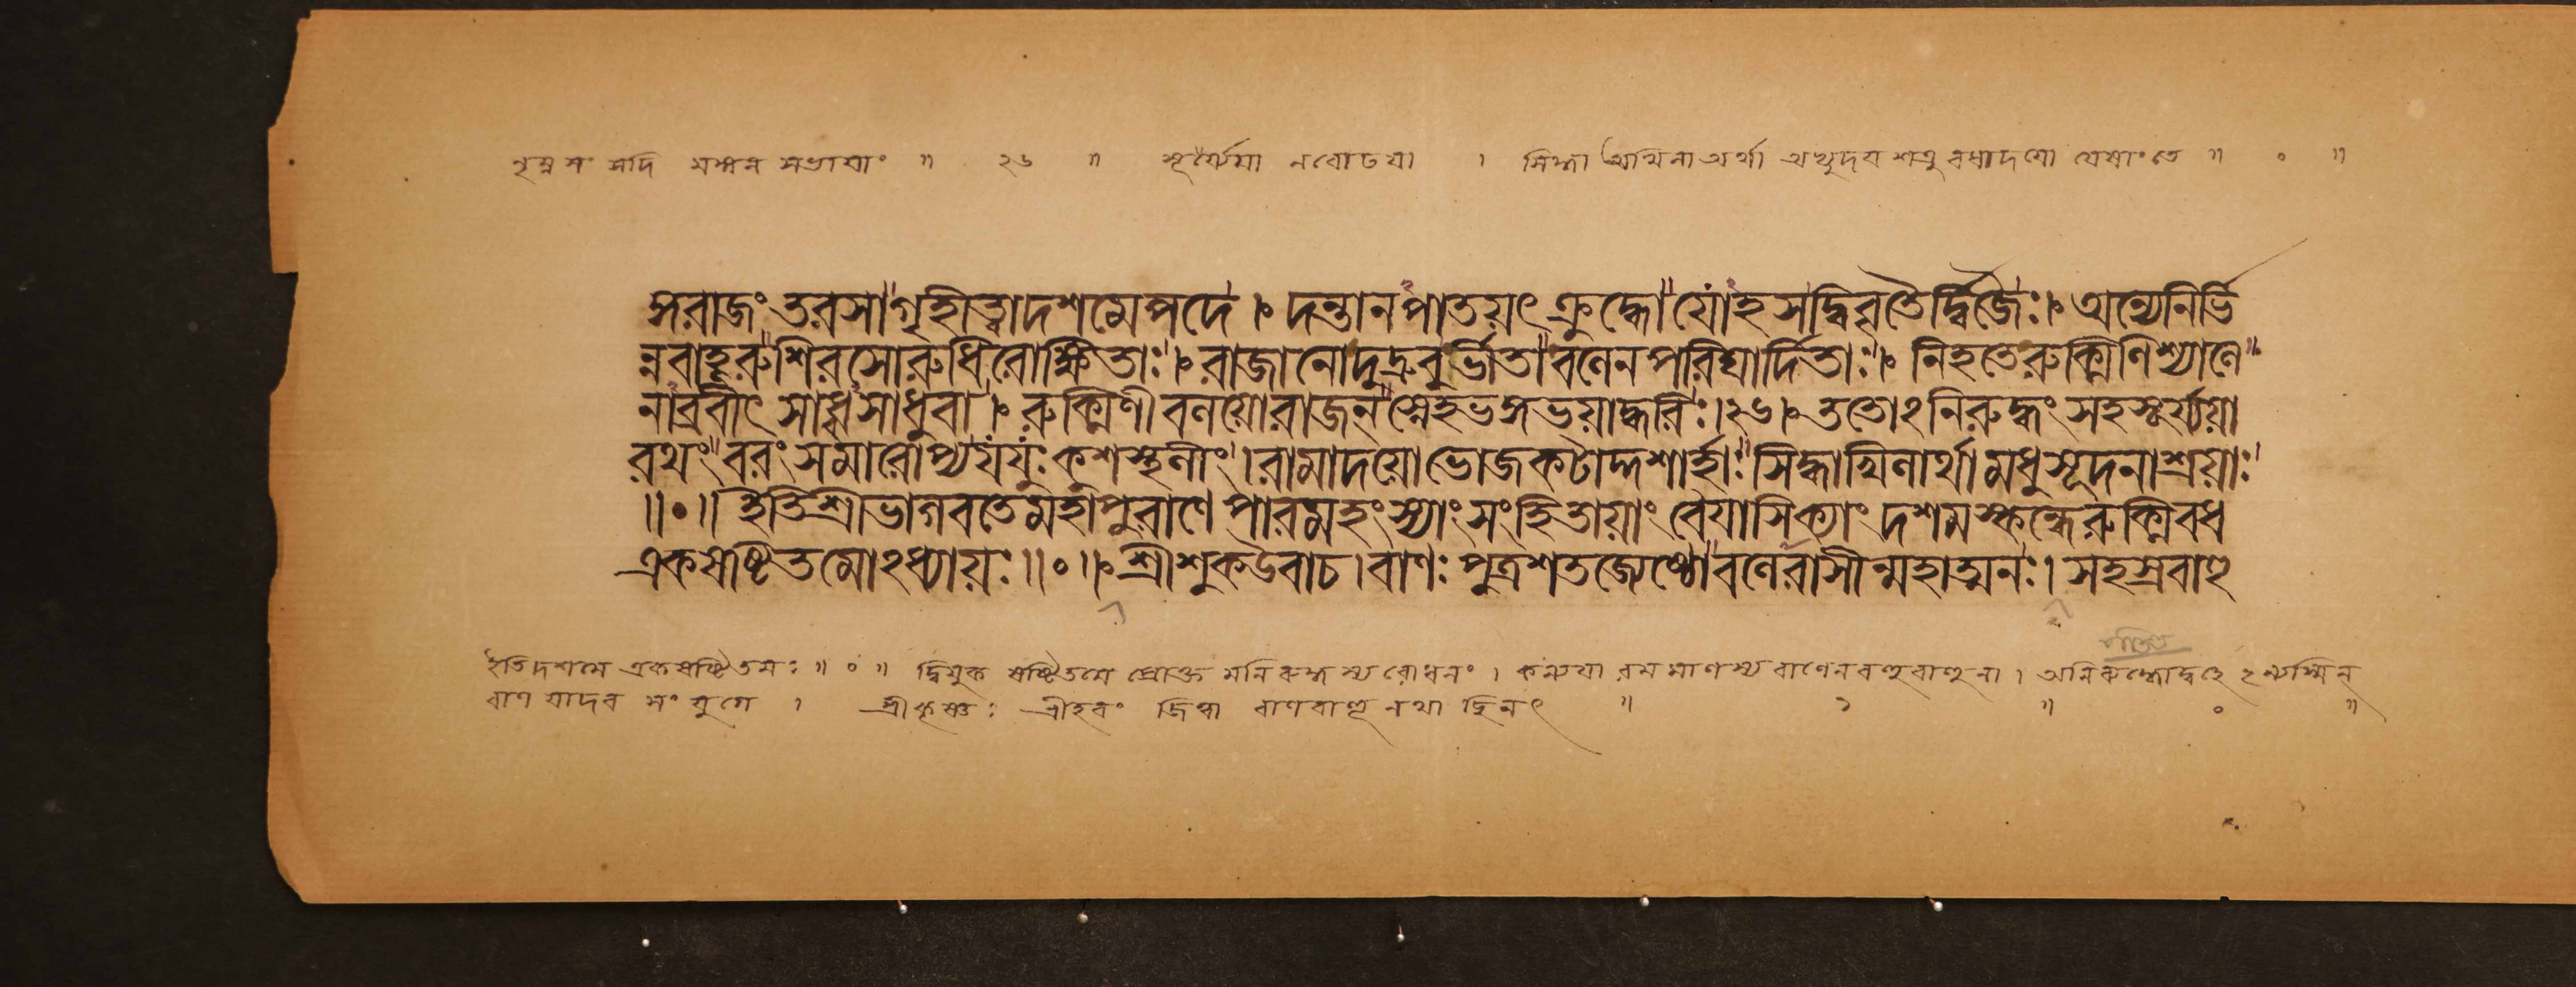 ঙ্গরাজং তরসা গৃহীত্বা দশমে পদে । দন্তানপাতয়ৎ ক্রুদ্ধো যোঽহসদ্বিবৃতৈর্দ্বিজৈঃ । অন্যেনির্ভি
ন্নবাহূরুশিরসোরুধিরোক্ষিতাঃ । রাজানোদুদ্রুবুর্ভীতা বলেন পরিঘার্দিতাঃ । নিহতেরুক্মিণিশ্যালে
নাব্রবীৎ সাধ্বসাধু বা । রুক্মিণীবলয়োরাজন্ স্নেহভঙ্গভয়াদ্ধরিঃ ।২৬। ততোঽনিরুদ্ধং সহসূর্য্যয়া
রথং বরং সমারোপ্য যযুঃ কুশস্থলীং । রামাদয়ো ভোজকটাদ্দশার্হাঃ সিদ্ধাখিলার্থা মধুসূদনাশ্রয়াঃ
॥০॥ ইতিশ্রীভাগবতেমহাপুরাণে পারমহংস্যাং সংহিতায়াং বৈয়াসিক্যাং দশমস্কন্ধেরুক্মিবধ
একষষ্টিতমোঽধ্যায়ঃ ॥০॥ শ্রীশুকউবাচ । বাণঃ পুত্রশতজ্যেষ্ঠো বলেরাসীন্মহাত্মনঃ । সহস্রবাহু
ইতিদশমে একষষ্টিতমঃ ॥ ০ ॥ দ্বিযুক ষষ্টিতমে প্রোক্ত মনিরুদ্ধস্য রোধনং । কন্যয়া রমমাণস্য বাণেনবহুবাহুনা ।
বাণ যাদব সংযুগে । শ্রীকৃষ্ণঃ শ্রীহরং জিত্বা বাণবাহূনথাছিনৎ ॥ ১ ॥ ০ ॥